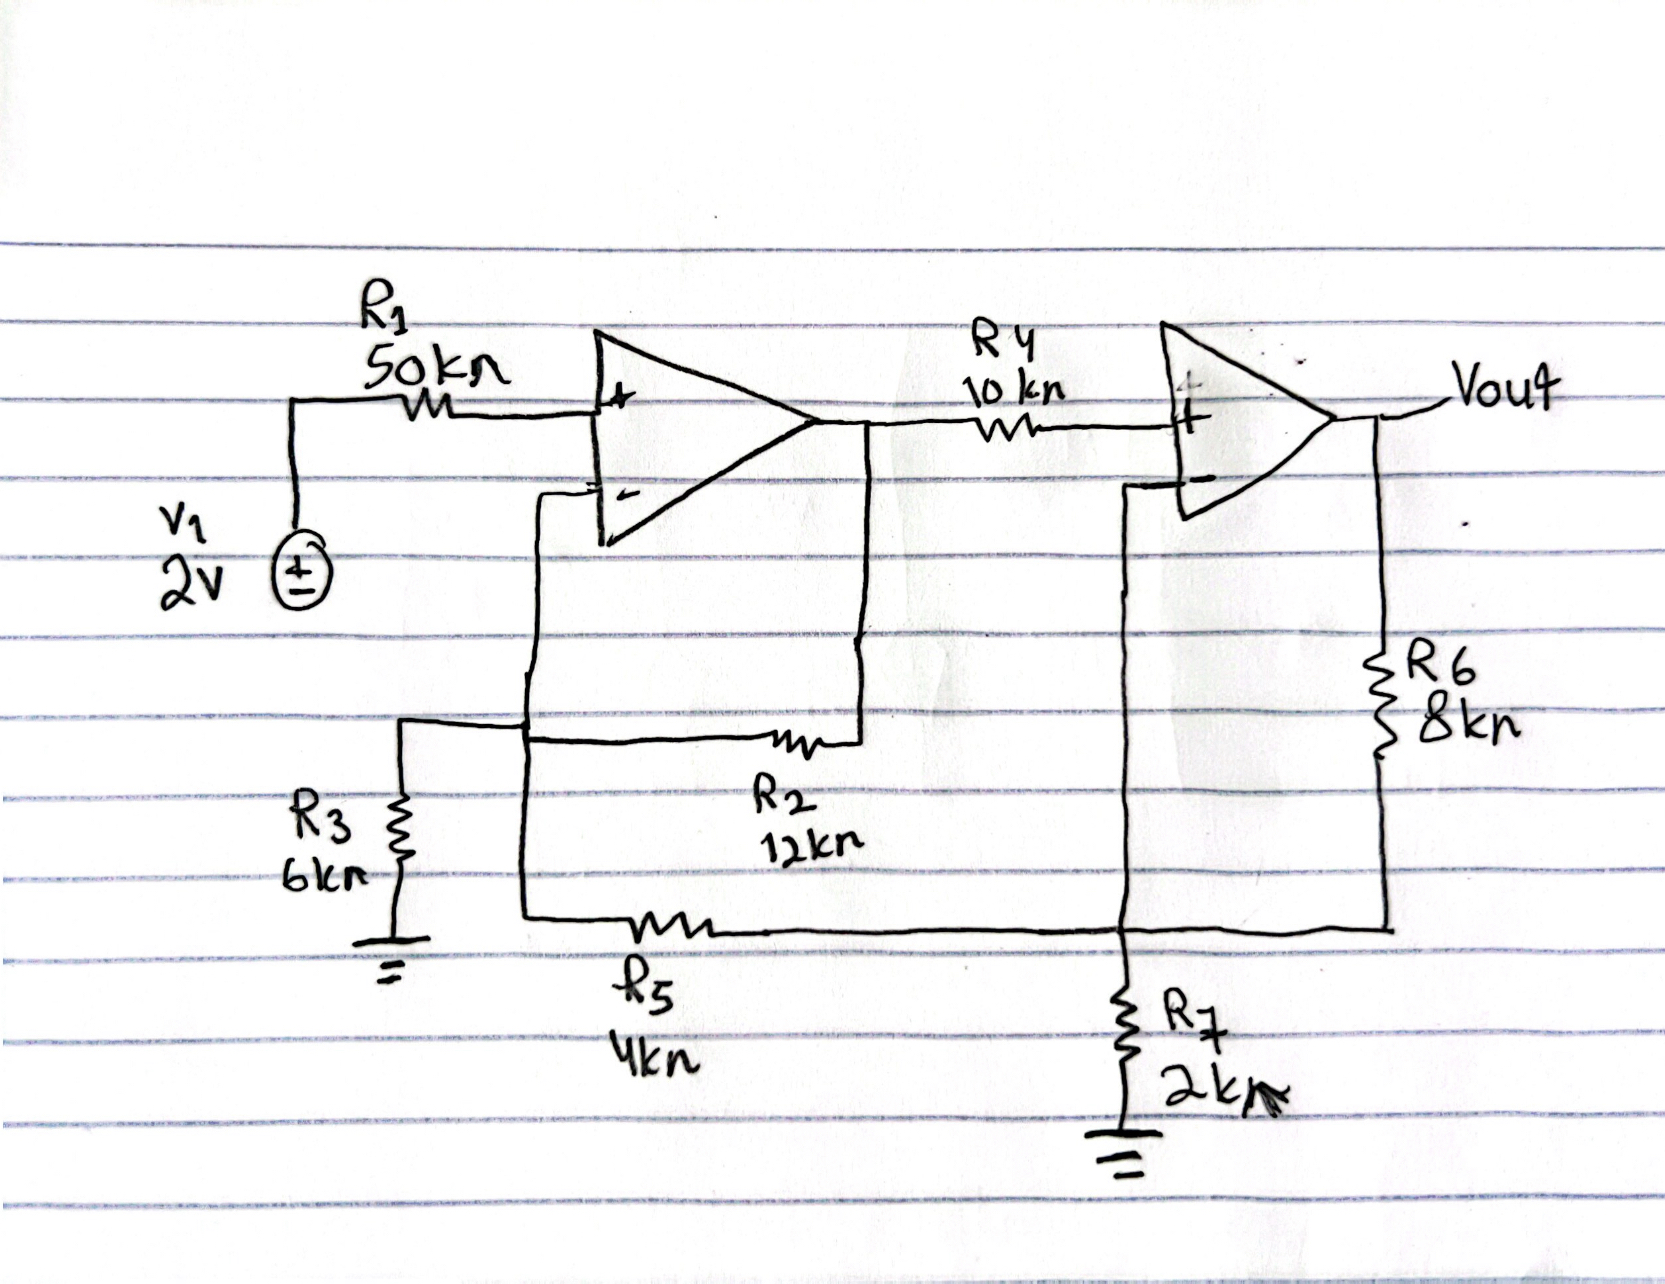 R1
50kΩ
V1
2V
+
-
+
-
R4
10 kΩ
+
-
Vout
R6
8kΩ
R3
6kΩ
R2
12kΩ
R5
4kΩ
R7
2kΩ